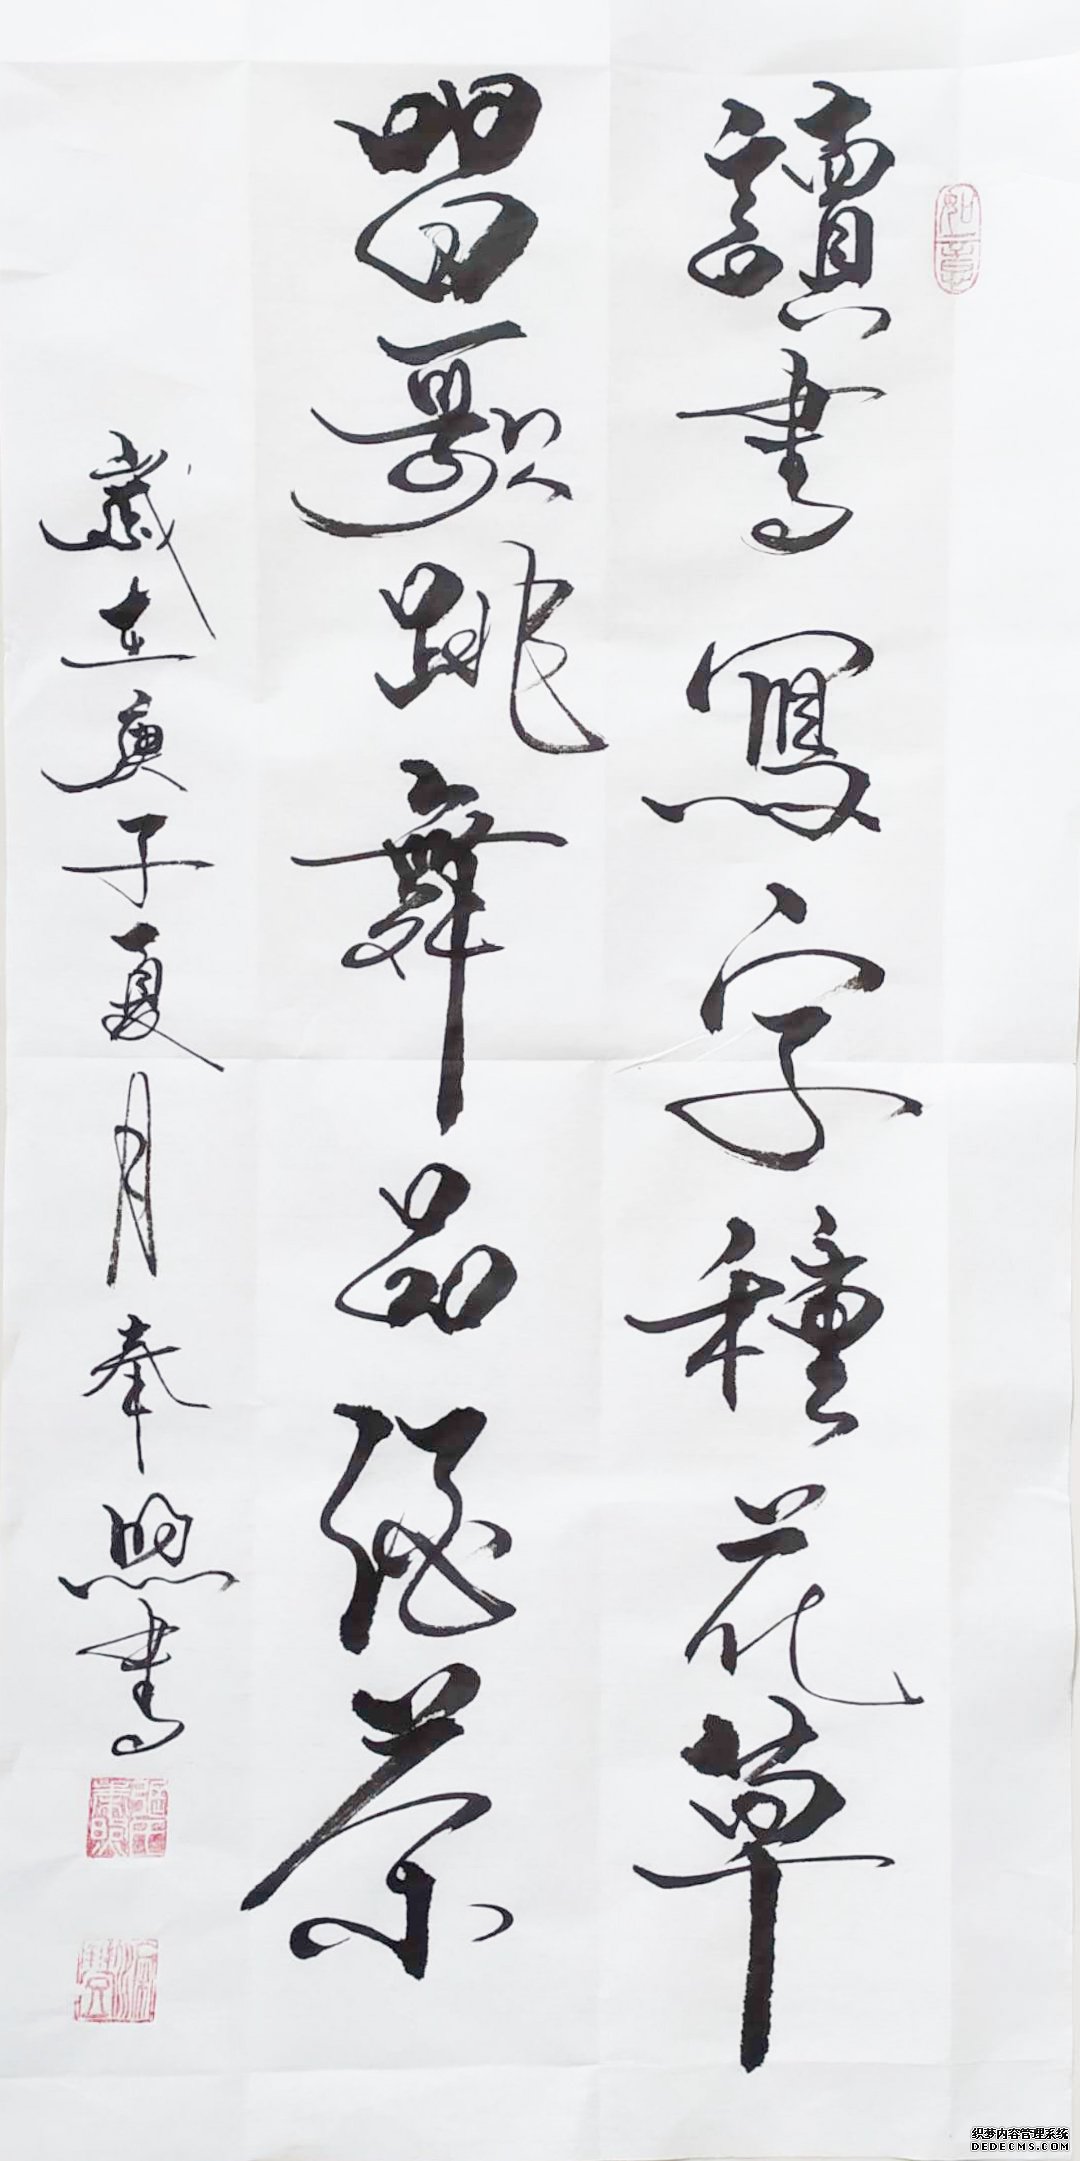 如意
讀書寫字種花草
唱歌跳舞品綠茶
歲在庚子夏月奉書
织梦内容管理系统
DEDECMS.COM